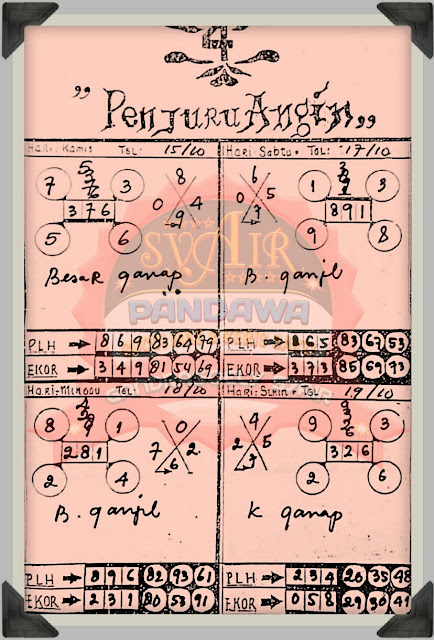 „ Penjuru Angin „
Hari: Kamis TGL: 15/10
8
7 3
0 4
376
9
5 6
Besar ganap
PLH → 8 6 9 83 64 79
EKOR → 3 4 9 81 54 69
Hari: Sabtu TGL: 17/10
6
1 3
0 5
891
7
9 8
B. ganjil
PLH → 8 6 5 83 67 53
EKOR → 3 7 3 85 69 93
Hari: Minggu TGL: 18/10
0
8 1
7 2
281
6
2 4
B. ganjil
PLH → 8 9 6 82 93 61
EKOR → 2 3 1 80 53 91
Hari: Senin TGL: 19/10
4
9 3
2 5
326
7
2 6
K ganap
PLH → 2 3 4 20 35 48
EKOR → 0 5 8 29 30 49
SYAIR
PANDAWA